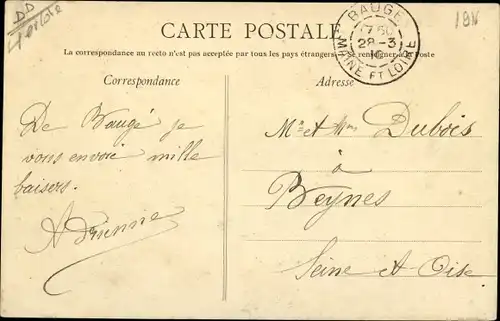 CARTE POSTALE
La correspondance au recto n'est pas acceptée par tous les pays étrangers. Se renseigner à la Poste
Correspondance
Adresse
BAUGÉ
28-3
MAINE ET LOIRE
De Baugé je
vous envoie mille
baisers.
Adrienne
Mr et Mme Dubois
à
Beynes
Seine et Oise